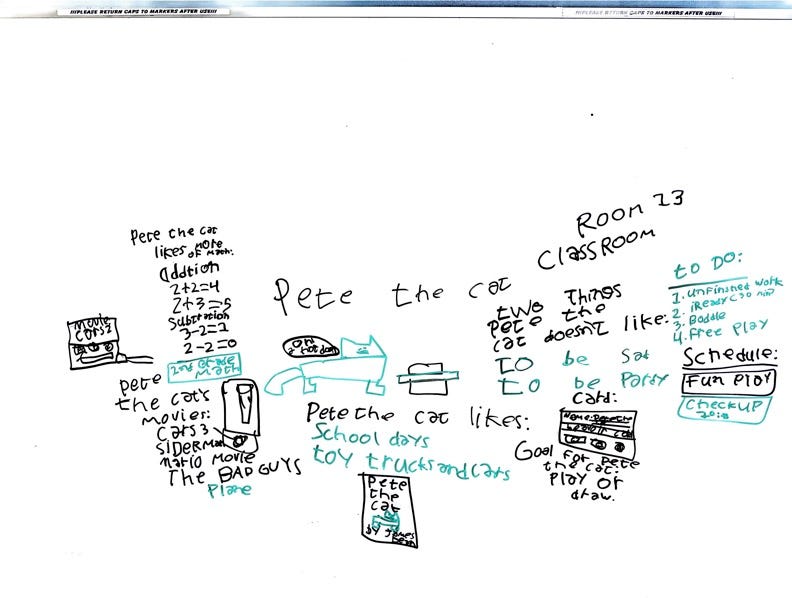 !!!PLEASE RETURN CAPS TO MARKERS AFTER USE!!!
!!!PLEASE RETURN CAPS TO MARKERS AFTER USE!!!
ROOM 23
ClASSROOM
Pete the cat
likes more
of math:
Addtion
2+2=4
2+3=5
Subtration
3-2=1
2-2=0
2nd Grade
Math
movie
cars 3
Pete the cat
Pete
the cat's
movies:
Cars 3
SIDERman
mario movie
The BAD GUYS
Plane
oh
hot dog
Pete the cat likes:
School days
toy trucks and cars
Pete
the
cat
by James
Dean
two Things
Pete the
cat doesn't like:
TO be Sad
to be Party
Card:
Goal for Pete
the cat:
Play or
draw.
to DO:
1. unfinished work
2. iReady
3. Boddle
4. Free Play
Schedule:
Fun Play
CheckUP